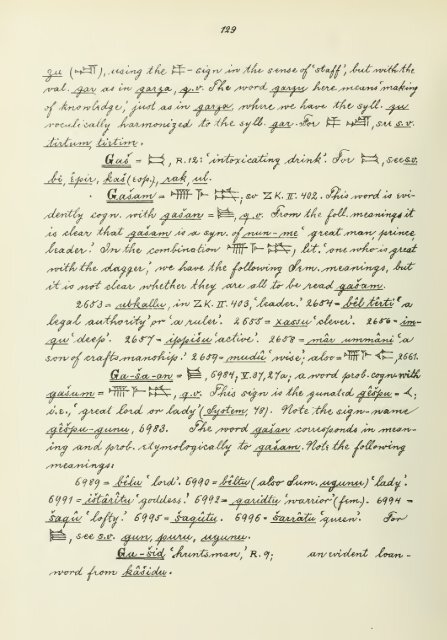 129
zu (𒍪), using the - sign in the sense of 'staff', but with the
val. gar as in garza, q.v. The word garzu here means 'making
of knowledge,' just as in garza, where we have the syll. zu
vocalically harmonized to the syll. gar. For see s.v.
tirtum, tirtim.
Gaš = , R. 12: 'intoxicating drink.' For , see s.v.
bi, épir, kaš (eop.), rak, ul.
Gašam = ; so ZK. II. 402. This word is evi-
dently cogn. with gašan = , q.v. From the foll. meanings it
is clear that gašam is a syn. of nun-me 'great man, prince
leader.' In the combination , lit. 'one who is great
with the dagger,' we have the following Sem. meanings, but
it is not clear whether they are all to be read gašam.
2653 = abkallu, in ZK. II. 403, 'leader.' 2654 = bêl têrti 'a
legal authority' or 'a ruler.' 2655 = xassu 'clever.' 2656 = im-
qu 'deep'. 2657 = ippišu 'active'. 2658 = mâr ummâni 'a
son of craftsmanship.' 2659 = mudû 'wise'; also = , 2661.
Ga-ša-an = , 6984, V. 37, 27a; a word prob. cogn. with
gašum = , q.v. This sign is the gunated gêšpu = ;
i.e., 'great lord or lady' (System, 78). Note the sign-name
gêšpu-gunu, 6983. The word gašan corresponds in mean-
ing and prob. etymologically to gašam. Note the following
meanings:
6989 = bêlu 'lord'. 6990 = bêltu (also Sum. ugunu) 'lady'.
6991 = ištârîtu 'goddess.' 6992 = qaridtu 'warrior' (fem.). 6994 =
šaqû 'lofty.' 6995 = šaqûtu. 6996 = šarrâtu 'queen'. For
, see s.v. gun, puru, ugunu.
Ga-šid 'huntsman,' R. 9; an evident loan-
word from kâšidu.